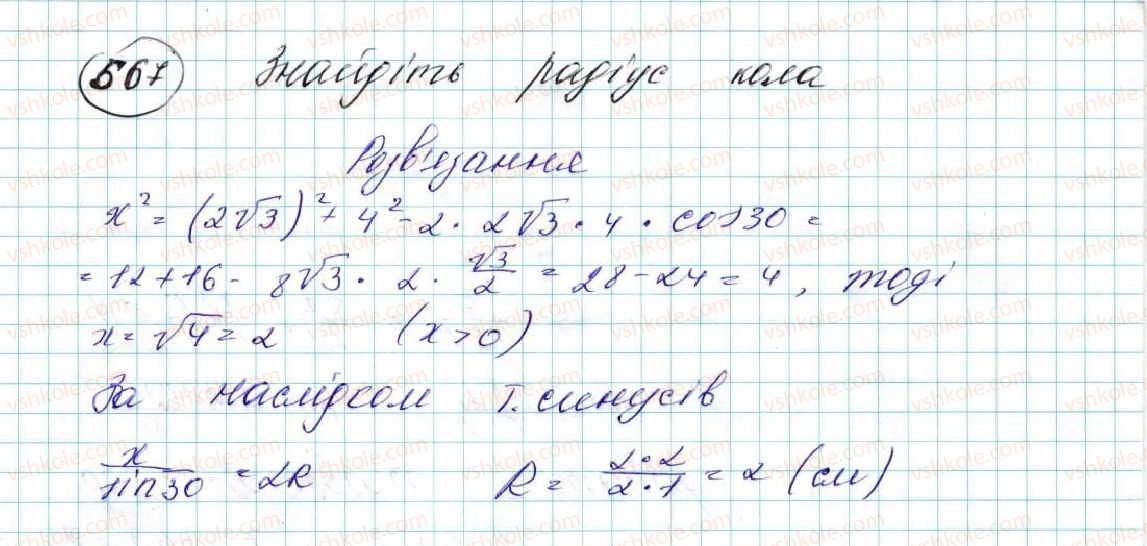 567 Знайдіть радіус кола
Розв'язання
x² = (2√3)² + 4² - 2 · 2√3 · 4 · cos30 =
= 12 + 16 - 8√3 · 2 · √3/2 = 28 - 24 = 4, тоді
x = √4 = 2 (x > 0)
За наслідком т. синусів
x/sin30 = 2R R = 2·2/2·1 = 2 (см)